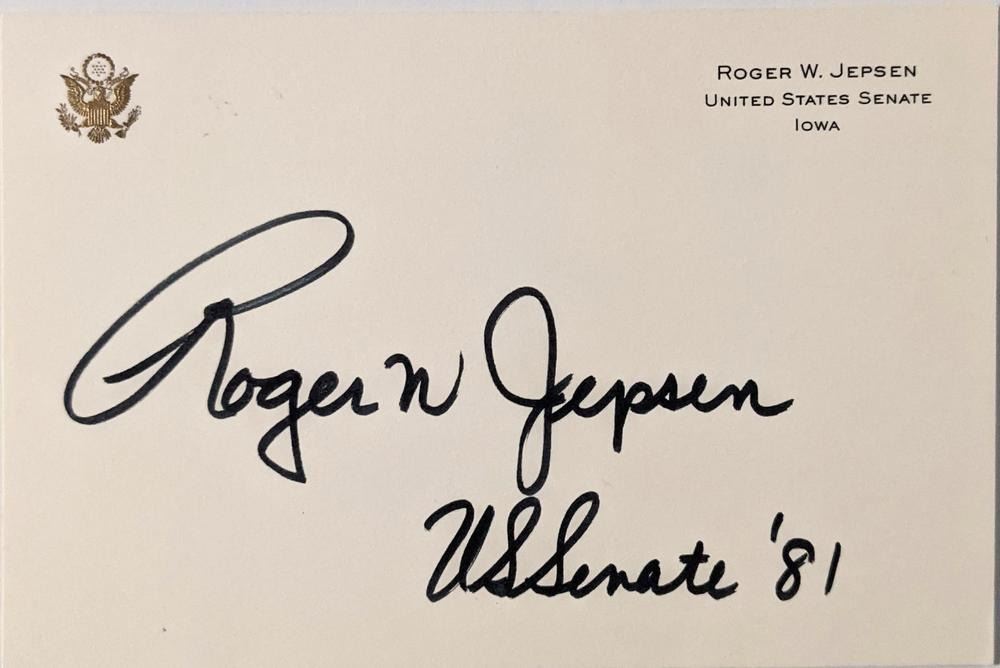 ROGER W. JEPSEN
UNITED STATES SENATE
IOWA
Roger W Jepsen
US Senate '81